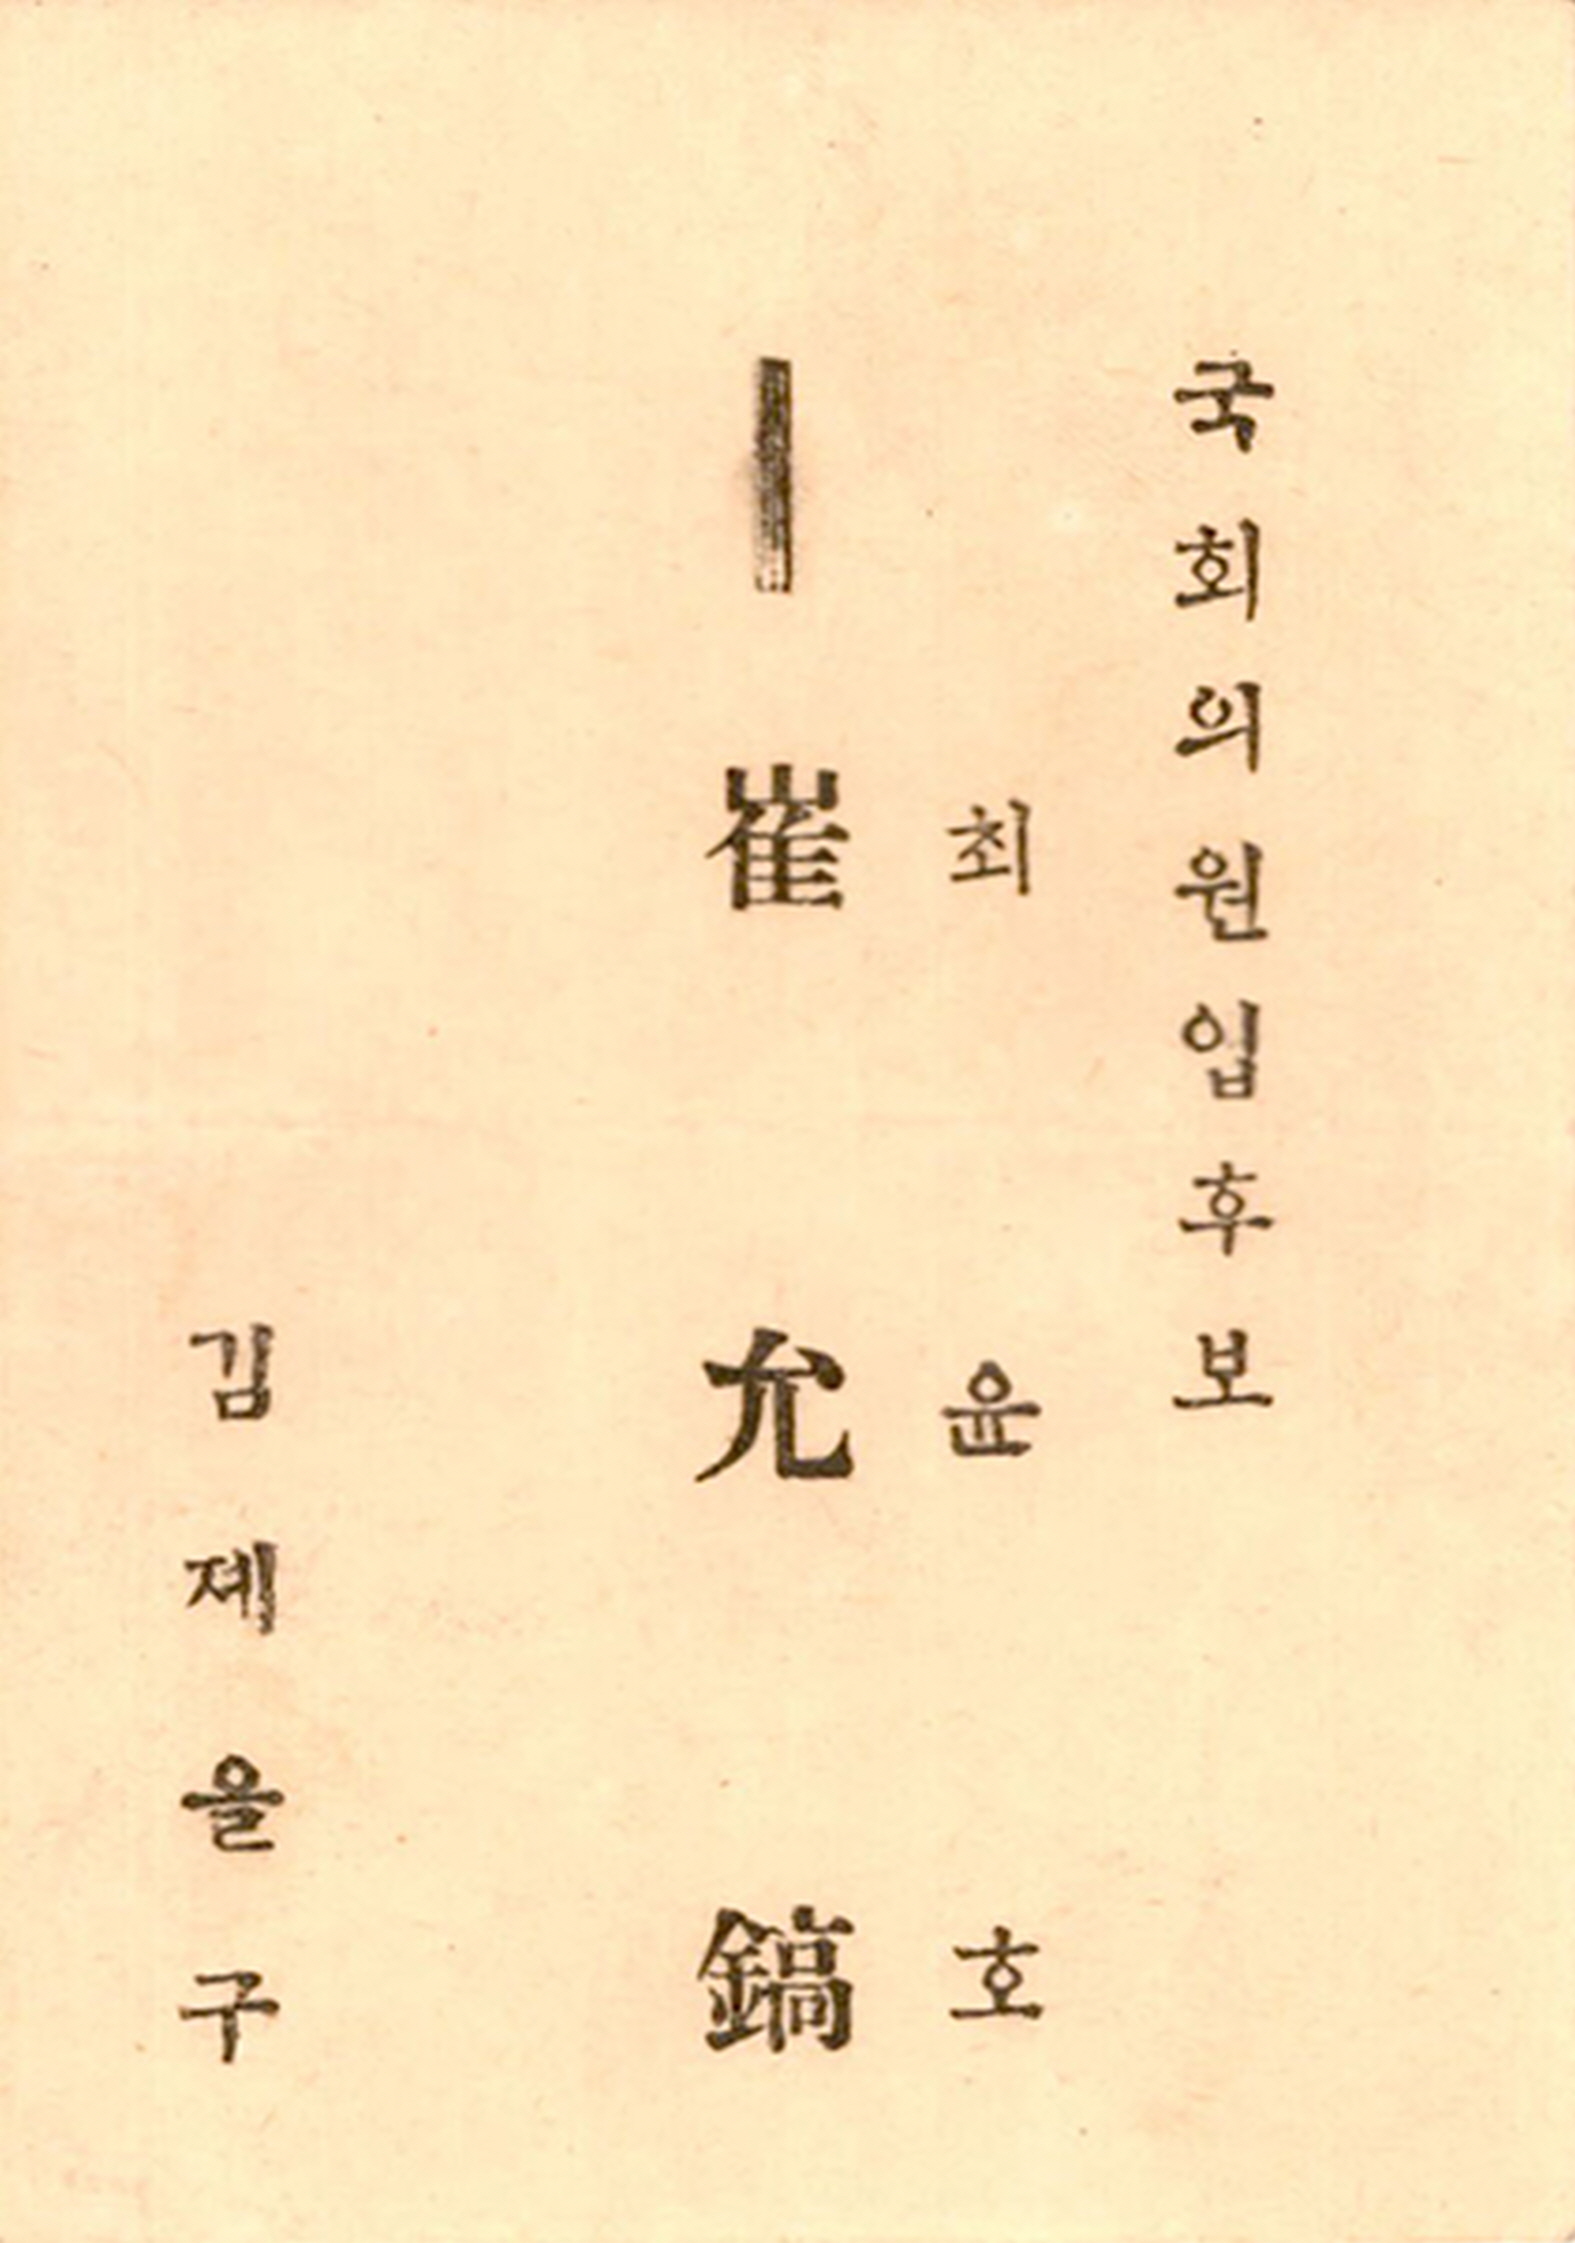 국회의원입후보
최윤호
崔允鎬
김제을구